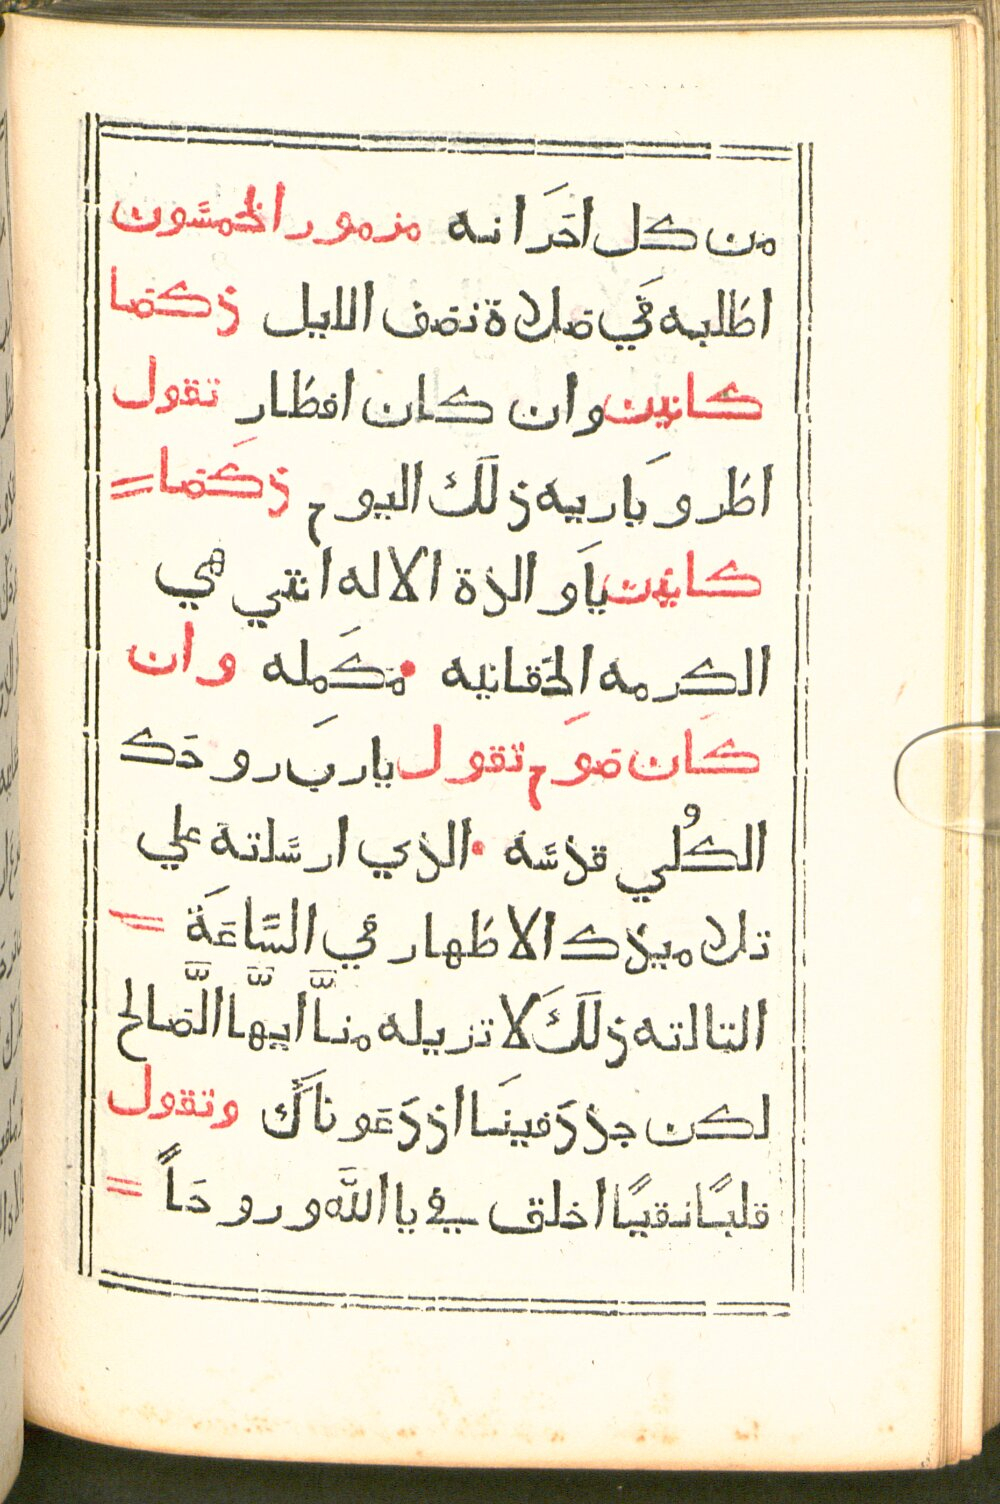 من كل احزانه مزمور الخمسون
اطلبه في صلاة نصف الليل ذكصا
كانين وان كان افطار تقول
اطرو باريه ذلك اليوم ذكصا =
كانين يا والدة الاله انتي هي
الكرمه الحقانيه • مكمله وان
كان صوم تقول يارب روحك
الكلي قدسه • الذي ارسلته علي
تلاميذك الاطهار في الساعة =
التالته ذلك لا تزيله منا ايها الصالح
لكن جدد فينا اذ دعوناك وتقول
قلبًا نقيًا اخلق في يا الله وروحًا =